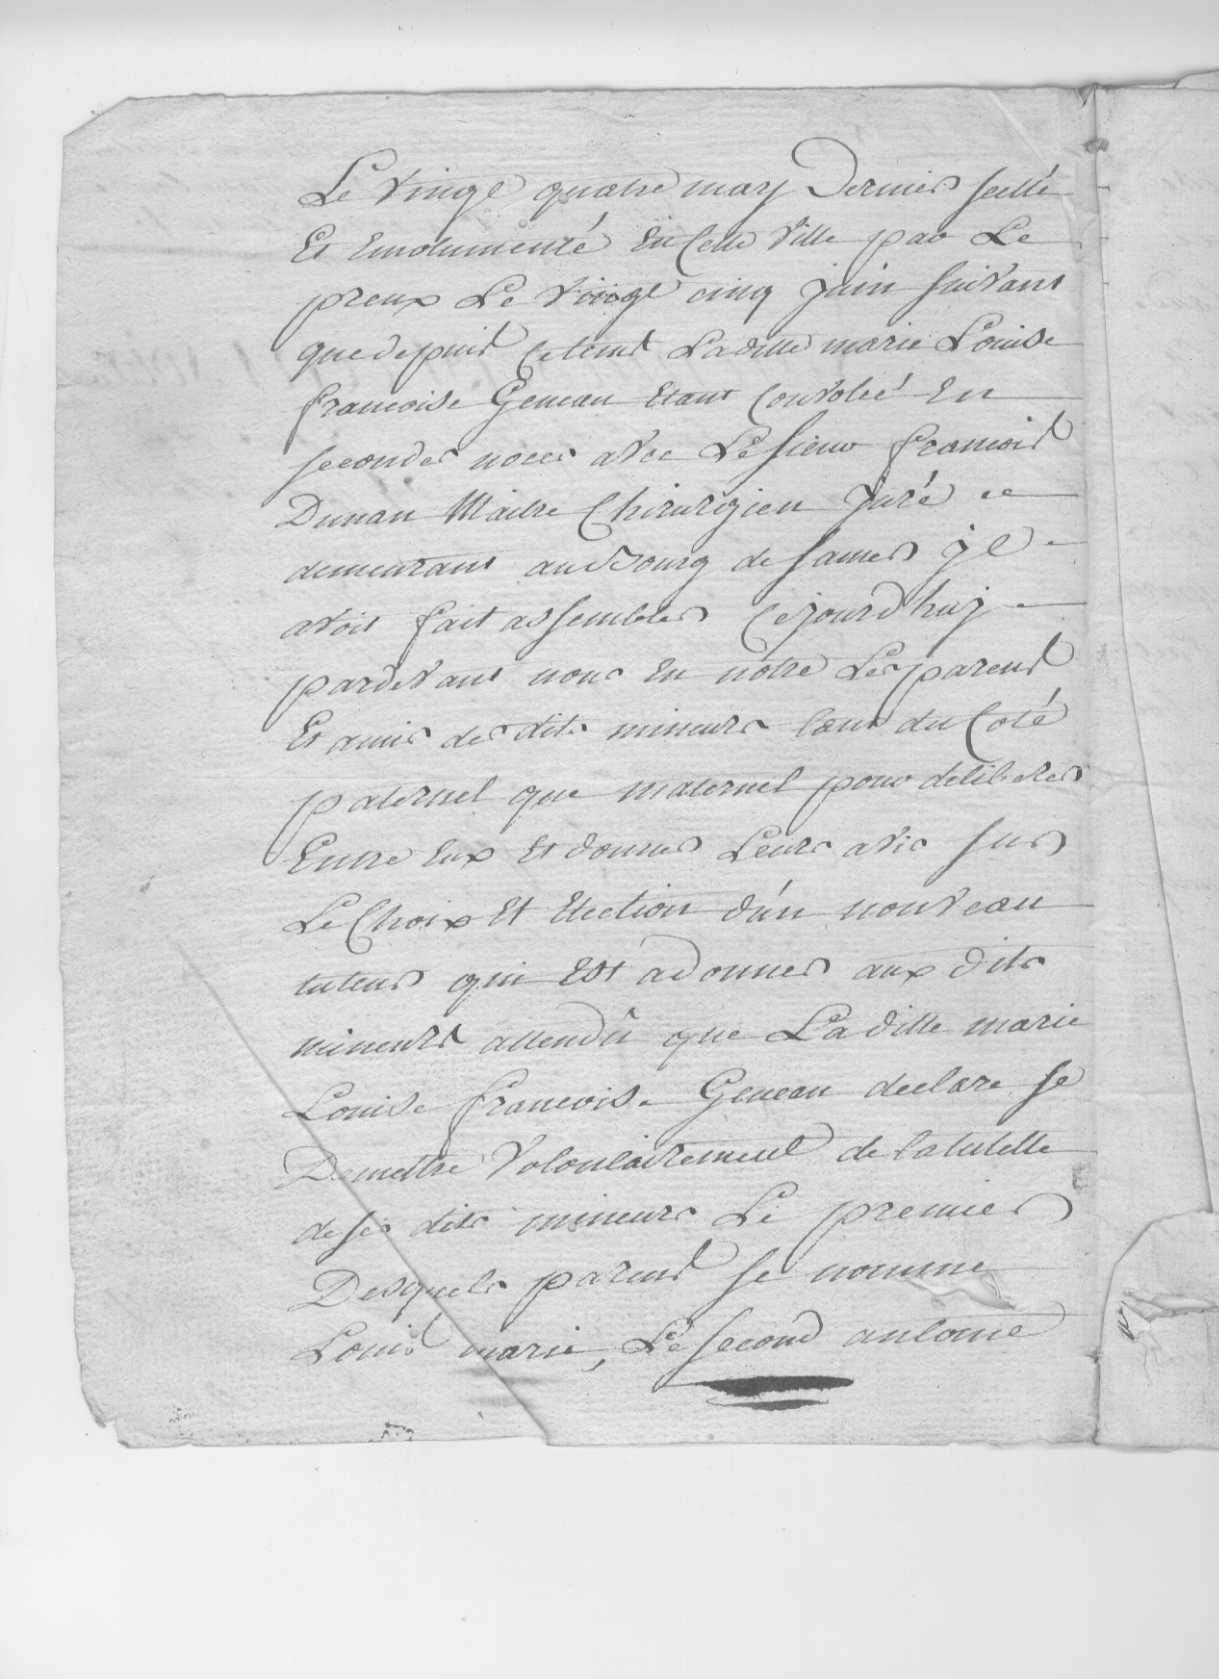 Le vingt quatre may Dernier scellé
Et Emolumenté En Cette ville par Le
preux Le vingt cinq juin suivant
que depuis ce tems Laditte marie Louise
francoise Geneau Etant Convolée En
secondes noces avec Le sieur francois
Dunan Maitre Chirurgien Juré
demeurant au Bourg de sames
avoit fait assembler Cejourd'huy
pardevant nous En notre Les parens
Et amis des dits mineurs tant du Coté
paternel que maternel pour deliberer
Entre Eux Et donner Leurs avis sur
Le Choix Et Election d'un nouveau
tuteur qui Est a donner aux dits
mineurs attendû que Laditte marie
Louise francoise Geneau declare se
Demettre volontairement de la tutelle
de ses dits mineurs Le premier
Desquels parens se nomme
Louis marie, Le second antoine